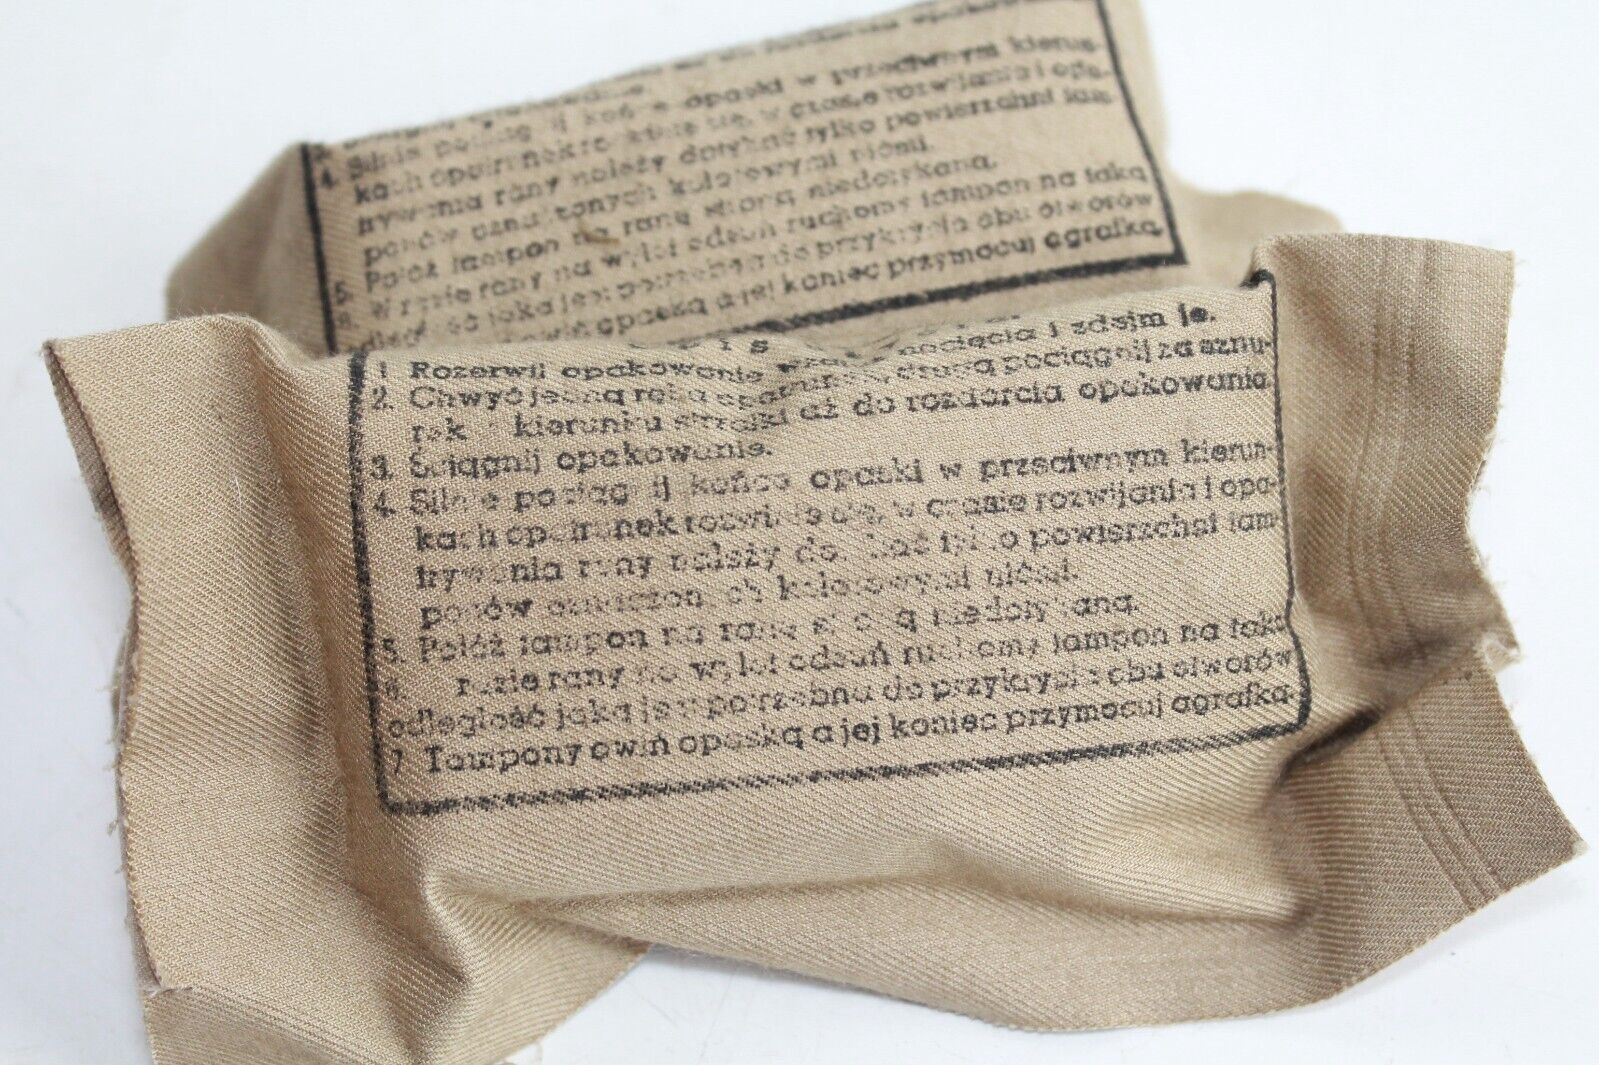 4. Silnie opaski w przeciwnym kierun-
kach opatrunek w czasie rozwijania i opa-
trywania rany należy dotykać tylko powierzchni tam
ponów kolorowymi nićmi.
5. Połóż tampon na ranę stroną niedotykaną.
6. W razie rany na wylot odsuń ruchomy tampon na taką
odległość jaka jest potrzebna do przykrycia obu otworów
opaską a jej koniec przymocuj agrafką.
1 Rozerwij opakowanie nacięcia i zdejm je.
2. Chwyć jedną ręką drugą pociągnij za sznu-
rek kierunku strzałki aż do rozdarcia opakowania
3. Ściągnij opakowanie.
4. Silnie pociągnij końce opaski w przeciwnym kierun-
kach opatrunek rozwinie się, w czasie rozwijania i opa-
trywania rany należy dotykać tylko powierzchni tam-
ponów oznaczonych kolorowymi nićmi.
5. Połóż tampon na ranę stroną niedotykaną.
6. razie rany na wylot odsuń ruchomy tampon na taką
odległość jaka jest potrzebna do przykrycia obu otworów
7 Tampony owiń opaską a jej koniec przymocuj agrafką.